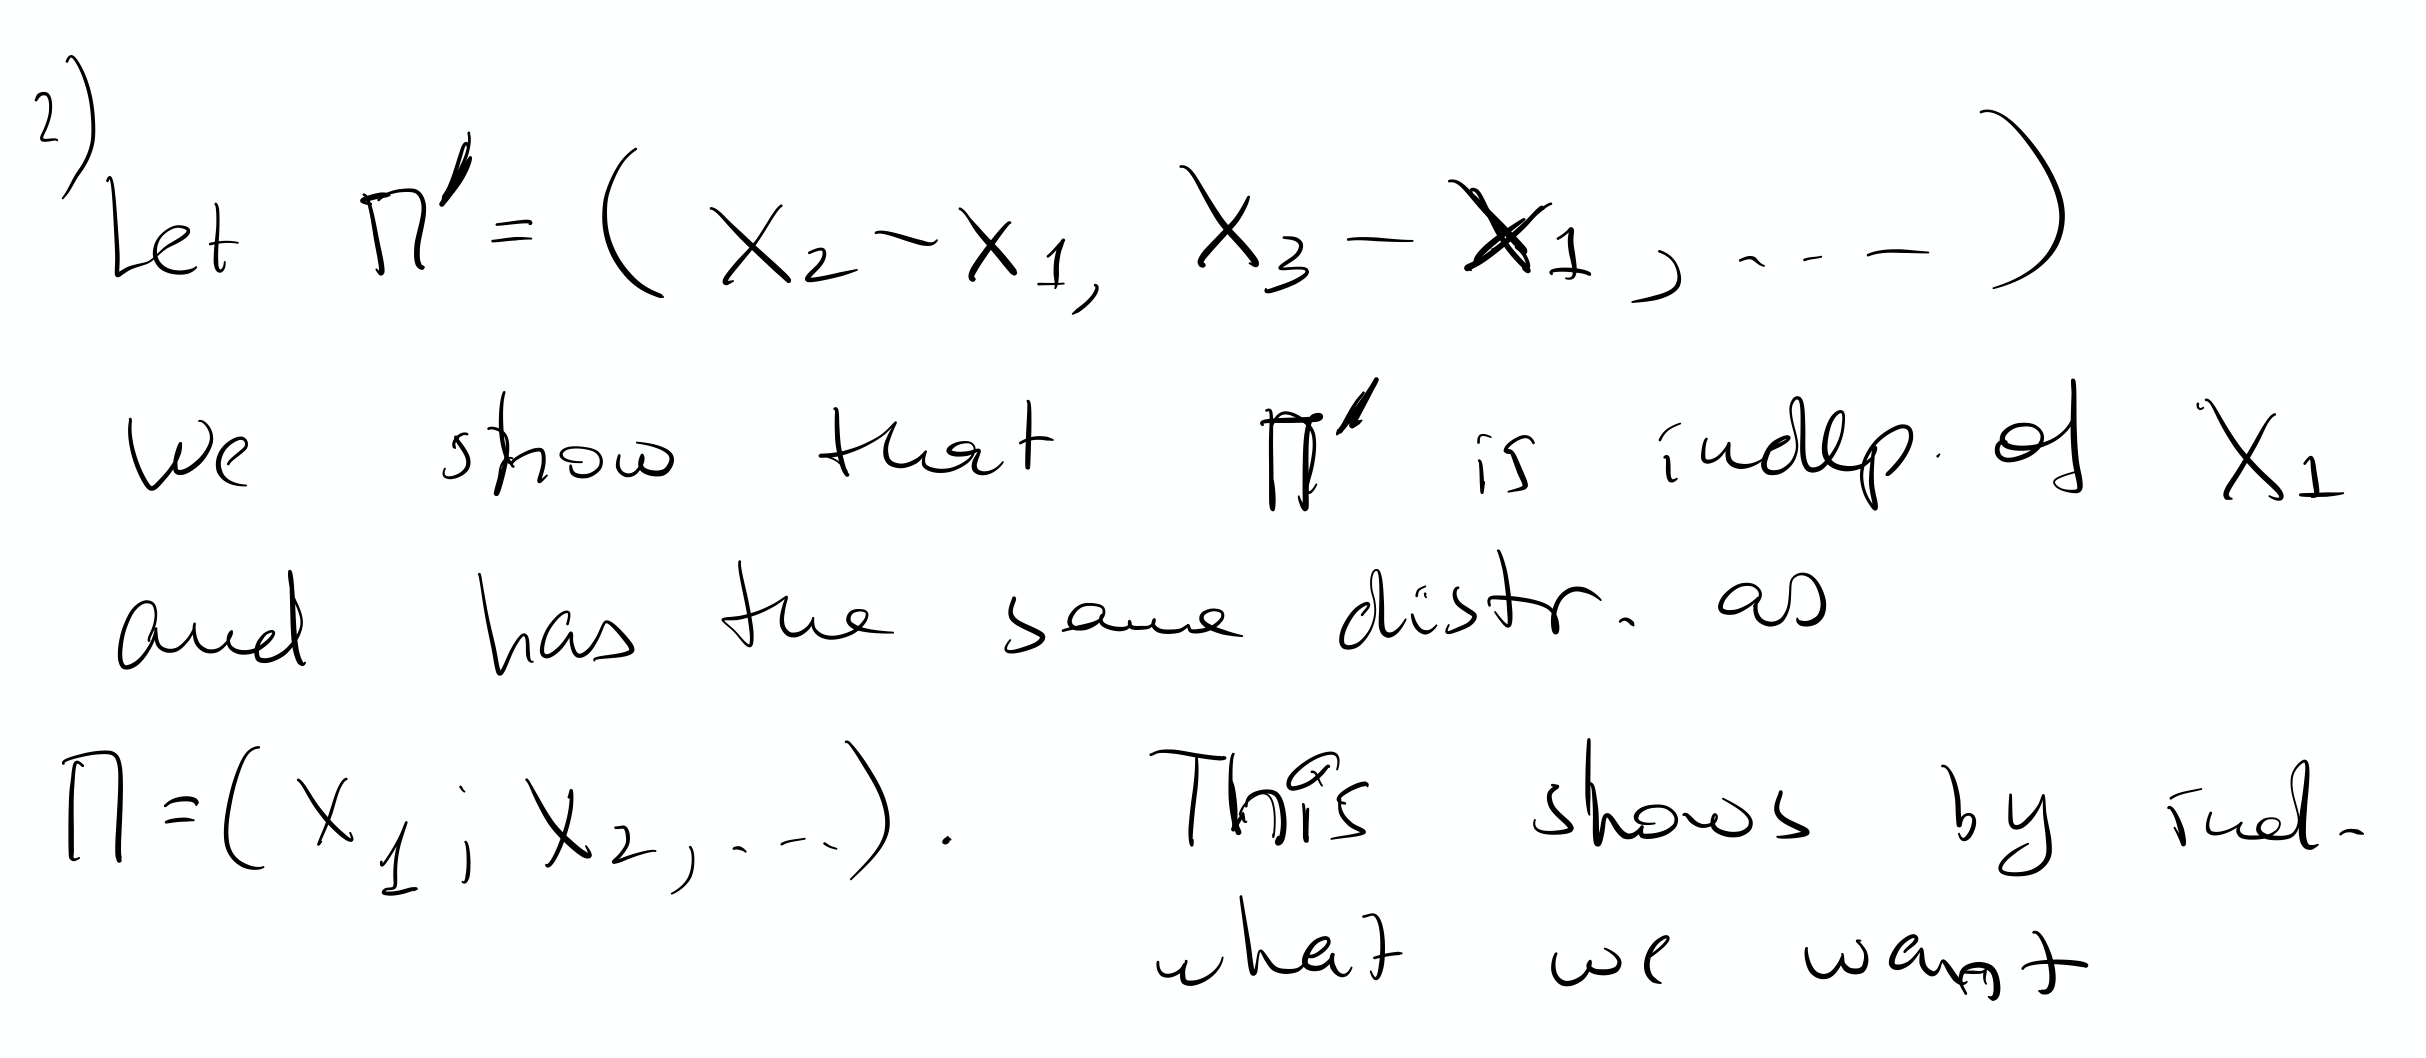 2)
Let Π' = ( X₂ - X₁, X₃ - X₁, ... )
we show that Π' is indep. of X₁
and has the same distr. as
Π = ( X₁, X₂, ... ). This shows by ind.
what we want